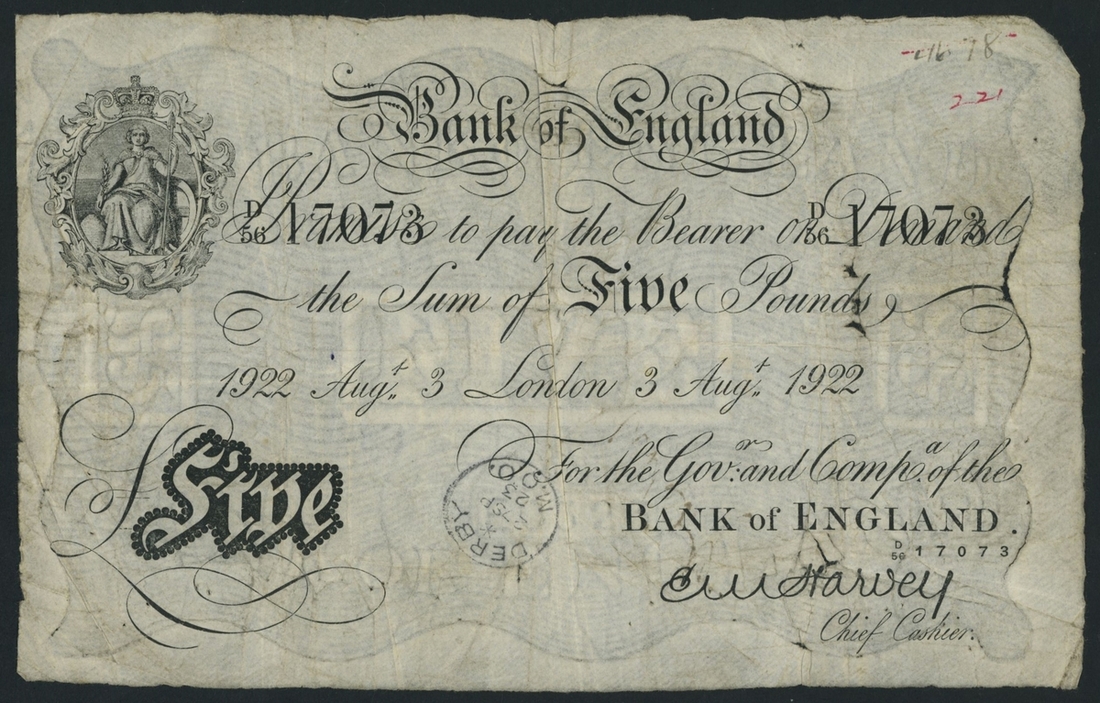 78
2-21
Bank of England
D/56 17073 D/56 17073
I Promise to pay the Bearer on Demand
the Sum of Five Pounds
1922 Augt. 3 London 3 Augt. 1922
For the Govr. and Compa. of the
£Five
DERBY
BANK of ENGLAND.
D/56 17073
E M Harvey
Chief Cashier.